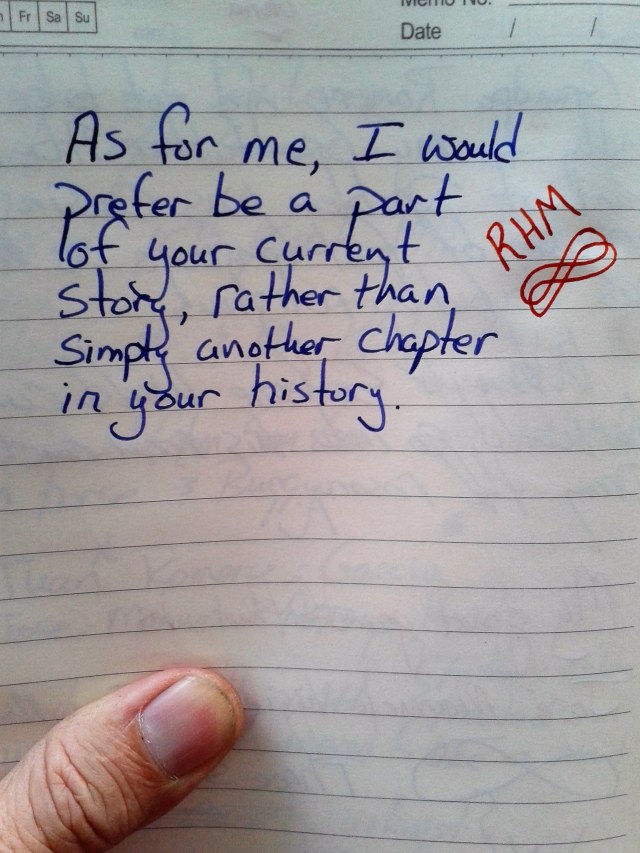 Fr Sa Su
Memo No.
Date / /
As for me, I would
prefer be a part
of your current
story, rather than
simply another chapter
in your history.
RHM